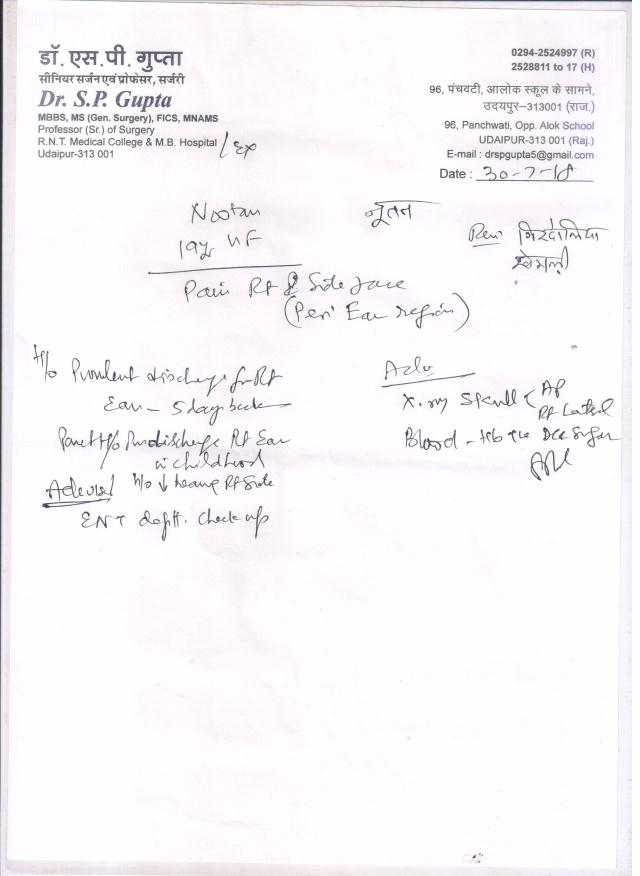 डॉ. एस.पी. गुप्ता
सीनियर सर्जन एवं प्रोफेसर, सर्जरी
Dr. S.P. Gupta
MBBS, MS (Gen. Surgery), FICS, MNAMS
Professor (Sr.) of Surgery
R.N.T. Medical College & M.B. Hospital / Ex
Udaipur-313 001
0294-2524997 (R)
2528811 to 17 (H)
96, पंचवटी, आलोक स्कूल के सामने,
उदयपुर–313001 (राज.)
96, Panchwati, Opp. Alok School
UDAIPUR-313 001 (Raj.)
E-mail : drspgupta5@gmail.com
Date : 30-7-18
Nootan नूतन
19y
Pain Rt Side face
(Peri Ear region)
H/o Purulent discharge fr Rt
Ear – 5 days back
Past H/o Pus discharge Rt Ear
in childhood
Advised H/o ↓ hearing Rt Side
ENT deptt. check up
Adv
X-ray Skull < AP
Rt Lateral
Blood – Hb TLC DLC Sugar